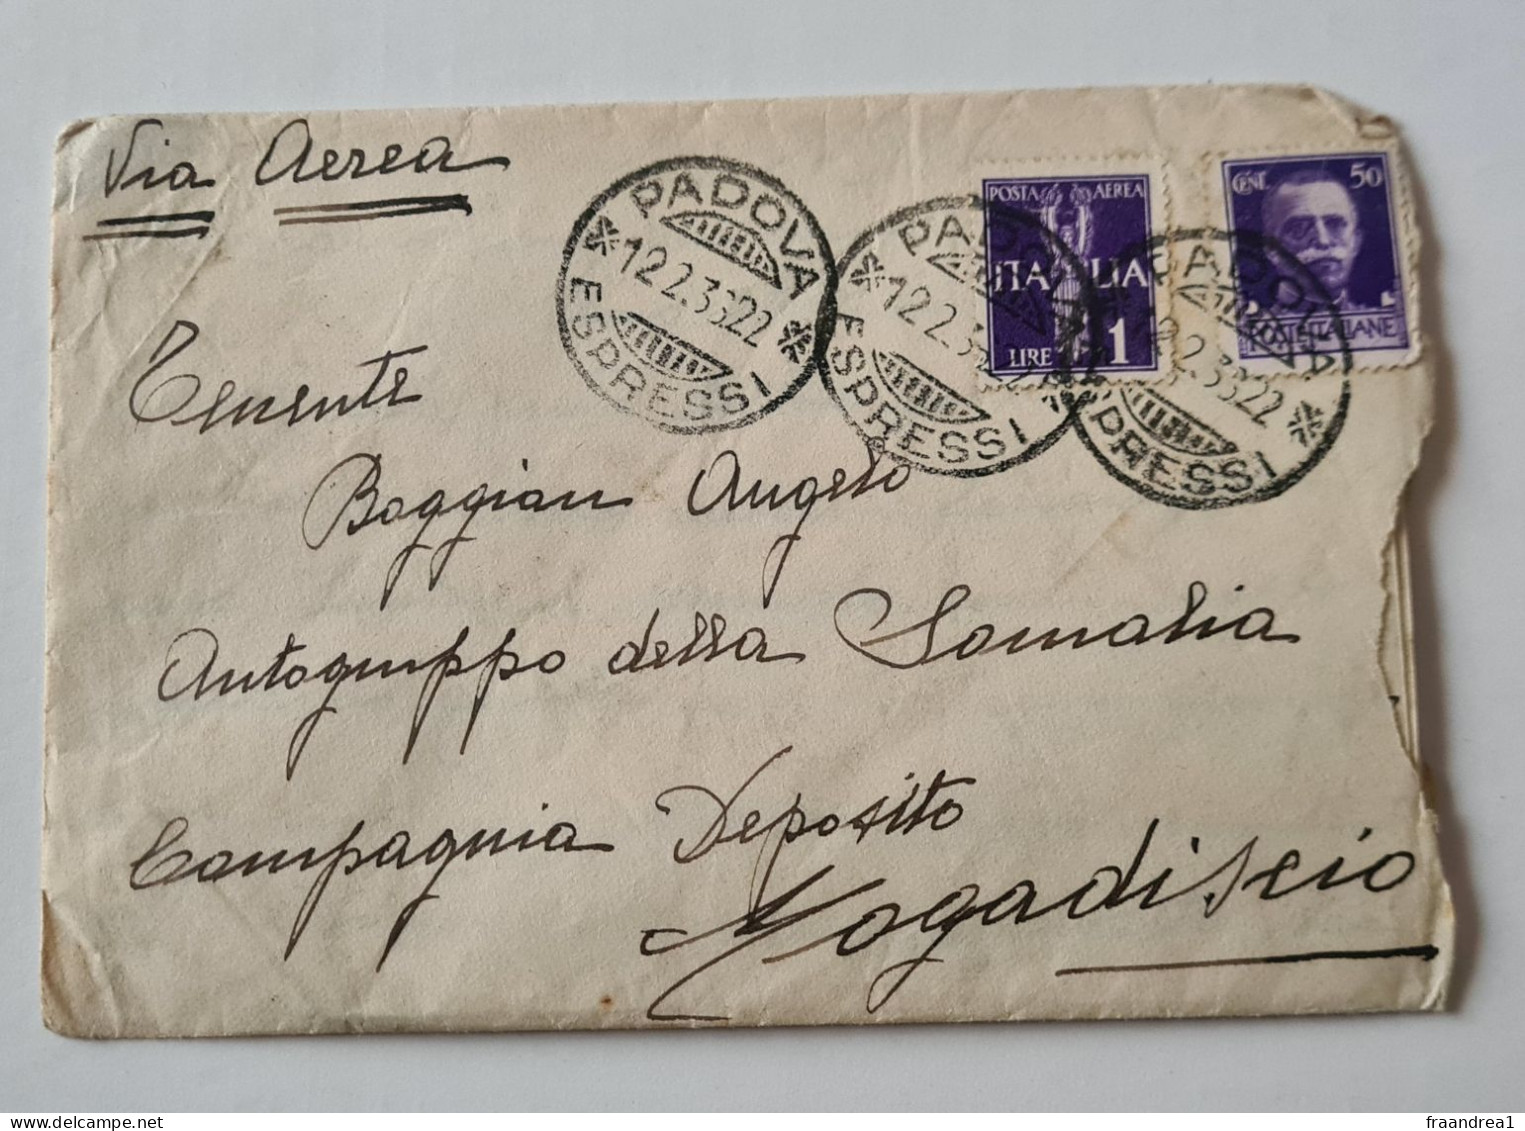 Via Aerea
PADOVA
12.2.36 22
ESPRESSI
PADOVA
12.2.36
ESPRESSI
POSTA AEREA
ITALIA
LIRE 1
PADOVA
22
ESPRESSI
CENT. 50
POSTE ITALIANE
Tenente
Boggian Angelo
Autogruppo della Somalia
Compagnia Deposito
Mogadiscio
fraandrea1